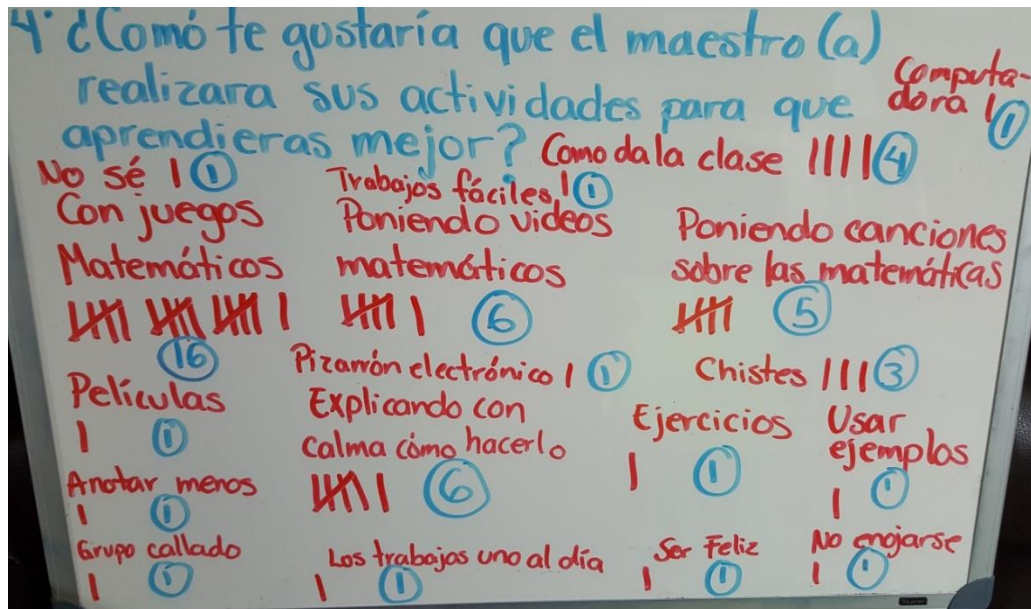 4. ¿Comó te gustaría que el maestro (a)
realizara sus actividades para que
aprendieras mejor?
Computa-
dora | 1
Como da la clase |||| 4
No sé | 1
Trabajos fáciles | 1
Con juegos
Matemáticos
|||| |||| |||| |
16
Poniendo videos
matemáticos
|||| | 6
Poniendo canciones
sobre las matemáticas
|||| 5
Pizarrón electrónico | 1
Chistes ||| 3
Películas
| 1
Explicando con
calma cómo hacerlo
|||| | 6
Ejercicios
| 1
Usar
ejemplos
| 1
Anotar menos
| 1
Grupo callado
| 1
Los trabajos uno al día
| 1
Ser Feliz
| 1
No enojarse
| 1